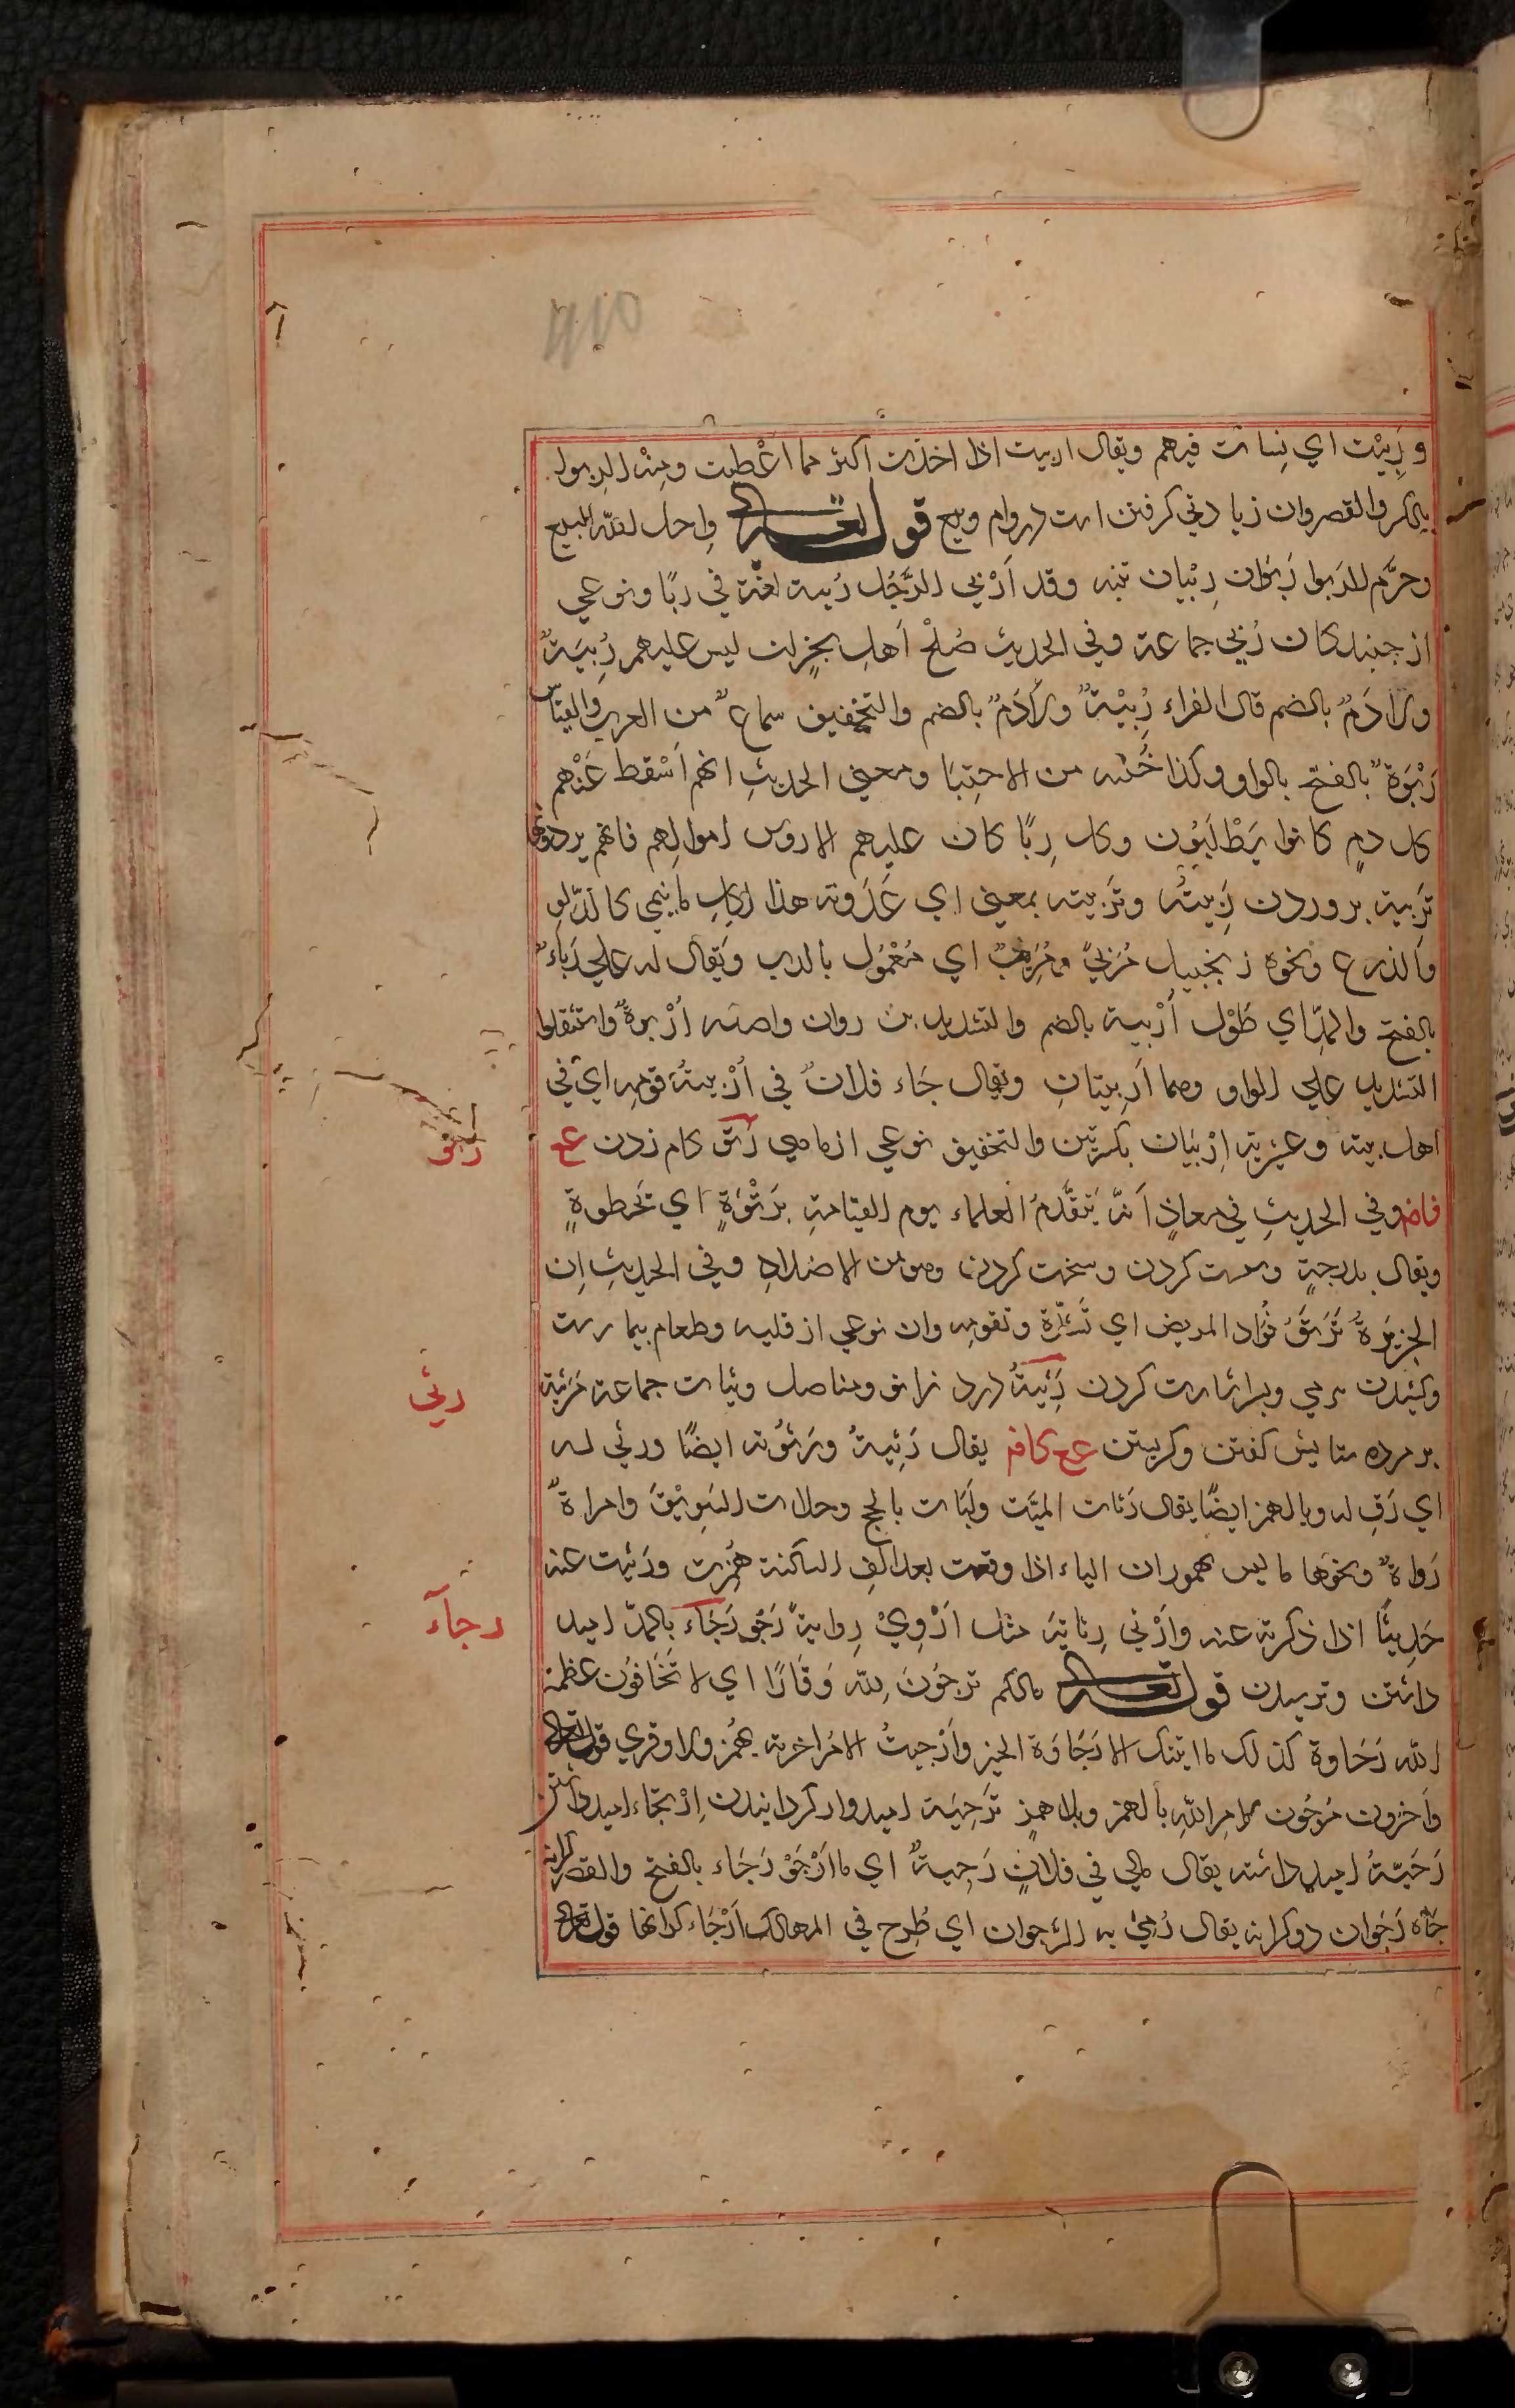 و رَبِيْت اي نِسات فيهم ويقال اربيت اذا اخذت اكثر مما اعْطيت ومِنْه الربوا
بالكسر والقصر وان زيادتي كرفتن است در وام وبيع قوله تعالى واحل الله البيع
وحرَّم الربوا رِبَوان رِبْيان تثنيه وقد اَرْبي الرَّجُل رُبية لغة في ربًا ونوعي
از جنبندكان رُبي جماعة وفي الحديث صُلح اَهلِ نجران ليس عليهم رُبِيَةٌ
ولا دَمٌ بالضم قال الفراء رُبِيْةٌ ولا دَمٌ بالضم والتخفيف سماعٌ من العرب والقياس
رَبْوَة بالفتح بالواو وكذا من الاحتِبَا ومعني الحديثِ انهم اَسْقط عَنْهم
كل دمٍ كانوا يَطْلبَوُن وكل رِبًا كان عليهم الا روس اموالهم فانهم يردونها
تَربية بروردن رَبيتُه وتَرَبيته بمعني اي غَذَوته هذا لكلِ ما ينمي كالوَلد
والزرع ونحوه زنجبيل مُرَبيً ومُرَبّبٌ اي مَعْمُول بالرب ويَقال له علي رَباءٌ
بالفتح والمدّ اي طَوْل اُرْبية بالضم والتشديد بن روان واصله اُرْبوةٌ واستثقلوا
التشديد علي الواو وهما اُرْبِيتانِ ويقال جَاء فلانٌ في اُرْبيتهُ قومِه اي في
اهل بيته وعشيرته اِرْبيَان بكسرتين والتخفيف نوعي از ماهي رَتو كام زدن عح
فاض وفي الحديثِ في معاذٍ اَنّه يَتقَّدمُ العلماء يوم القيامةِ بَرَتْوَةٍ اي بخَطوةٍ
ويقال بدرجةٍ وسست كردن وسخت كردن وهو من الاضدادِ وفي الحديث اِن
الخزِيَرةُ تَرتوُ فُوَاد المريض اي تَشدّهُ وتقويه وان نوعي از قليه وطعام بيمارست
وكشيدن بنرمي وبسر اشارت كردن رَثِيَةُ درد زانو ومفاصل رثيات جماعة مَرثية
بر مرده ستايش كفتن وكريستن عح كاض يقال رَثِيَةُ ورَثوْته ايضًا ورثي له
اي رَق له وبالهمز ايضًا يقال رَثات الميّت ولَبّات بالحج وحلات السَوِيْقَ وامراةٌ
رَثاةٌ ونحوها ما ليس بمهموز ان الياء اذا وقعت بعد الف الساكنة هُمِزت ورَثيت عنه
حَدِيثًا اذا ذكرته عنه وارْثي رِثايَة مثل اَرْوِيْ رِوايةً رَجْو رَجَاء بالمدّ اميد
داشتن وترسيدن قوله تعالى مالكم لا ترجوُنَ لله وَقَارًا اي لا تَخَافوُن عظمة
الله رَجَاوة كذلك ما اتيتك الا رَجَاوَة الخير واَرْجيتُ الامْر اخرته يُهْمَز ولا وقري قوله تعالى
واَخَرون مُرجَوُن لامرِ اللهِ بالهمز وبلا همزٍ تَرجِيَة اميدوار كردانيدن اِرْتجاء اميد داشتن
رَجيّةُ اميد داشته يقال مالي في فلانٍ رَجِيةٌ اي ما اَرْجُوْ رَجَاء بالفتح والقصر كرانه
جَاه رَجَوان دو كرانه يقال رُمِيَ به الرَجوان اي طُرِحَ في المهالك اَرْجَاء كرانها قوله تعالى
رتو
رثي
رجآء